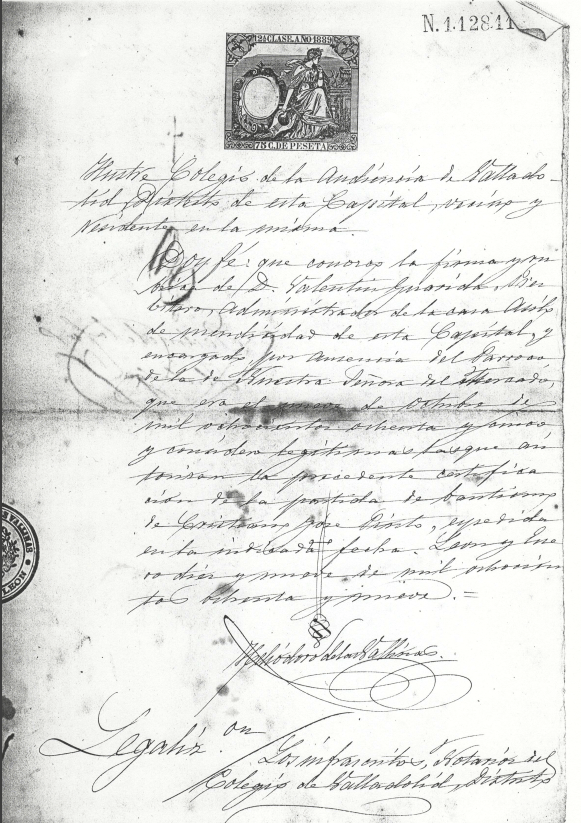 N. 1.128.11
12ª CLASE. AÑO 1889
75 C. DE PESETA
Ilustre Colegio de la Audiencia de Vallado-
lid, Distrito de esta Capital, vecino y
residente en la misma.
Doy fé: que conozco la firma y rú
brica de D. Valentin Guarida, Pres
bitero, Administrador de la casa Asilo
de mendicidad de esta Capital, y
encargado por ausencia del Parroco
de la de Nuestra Señora del Mercado,
que era el nueve de Octubre de
mil ochocientos ochenta y
y considero legitimas las que au
torizan la precedente certifica
ción de la partida de bautismo
de Cristiano José Pinto, expedida
en la indicada fecha. Leon y Ene
ro diez y nueve de mil ochocien
tos ochenta y nueve. =
Heliodoro de las Vallinas
Legaliz.on
Los infrascritos, Notarios del
Colegio de Valladolid, Distrito
VALLINAS